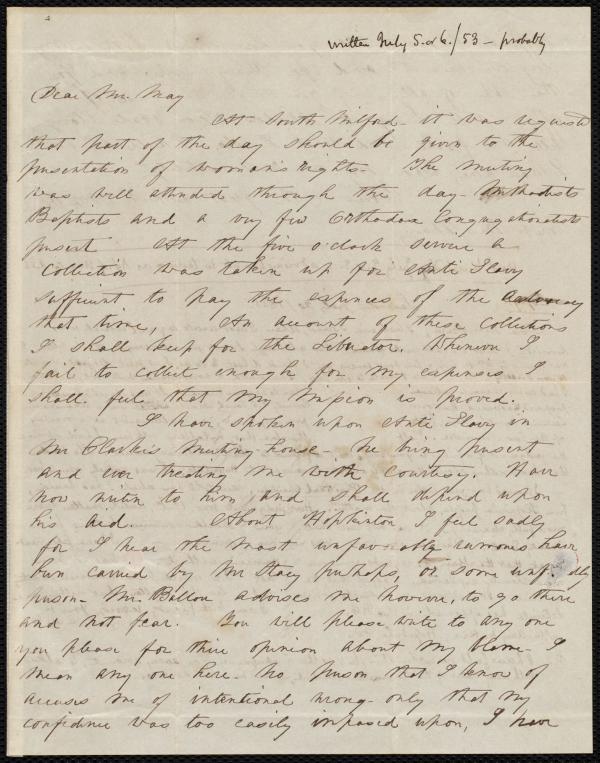 written July 5. or 6./53 - probably
Dear Mr. May
At South Milford it was requested
that part of the day should be given to the
presentation of woman's rights. The meeting
was well attended through the day Methodists
Baptists and a very few Orthodox Congregationalists
present At the five o'clock service a
collection was taken up for Anti Slavy
sufficient to pay the expences of the advocacy
that time, An account of these collections
I shall keep for the Liberator. Whenever I
fail to collect enough for my expenses I
shall feel that my mission is proved.
I have spoken upon Anti Slavy in
Mr Clarke's meeting house - he being present
and ever treating me with courtesy. Have
now written to him, and shall depend upon
his aid. About Hopkinton, I feel sadly
for I hear the most unfavorably rumours have
been carried by Mr Stacy perhaps, or some unfriendly
person - Mr. Ballou advises me however, to go there
and not fear. You will please write to any one
you please for their opinion about my blame - I
mean any one here. No person that I know of
accuses me of intentional wrong - only that my
confidence was too easily imposed upon, I have